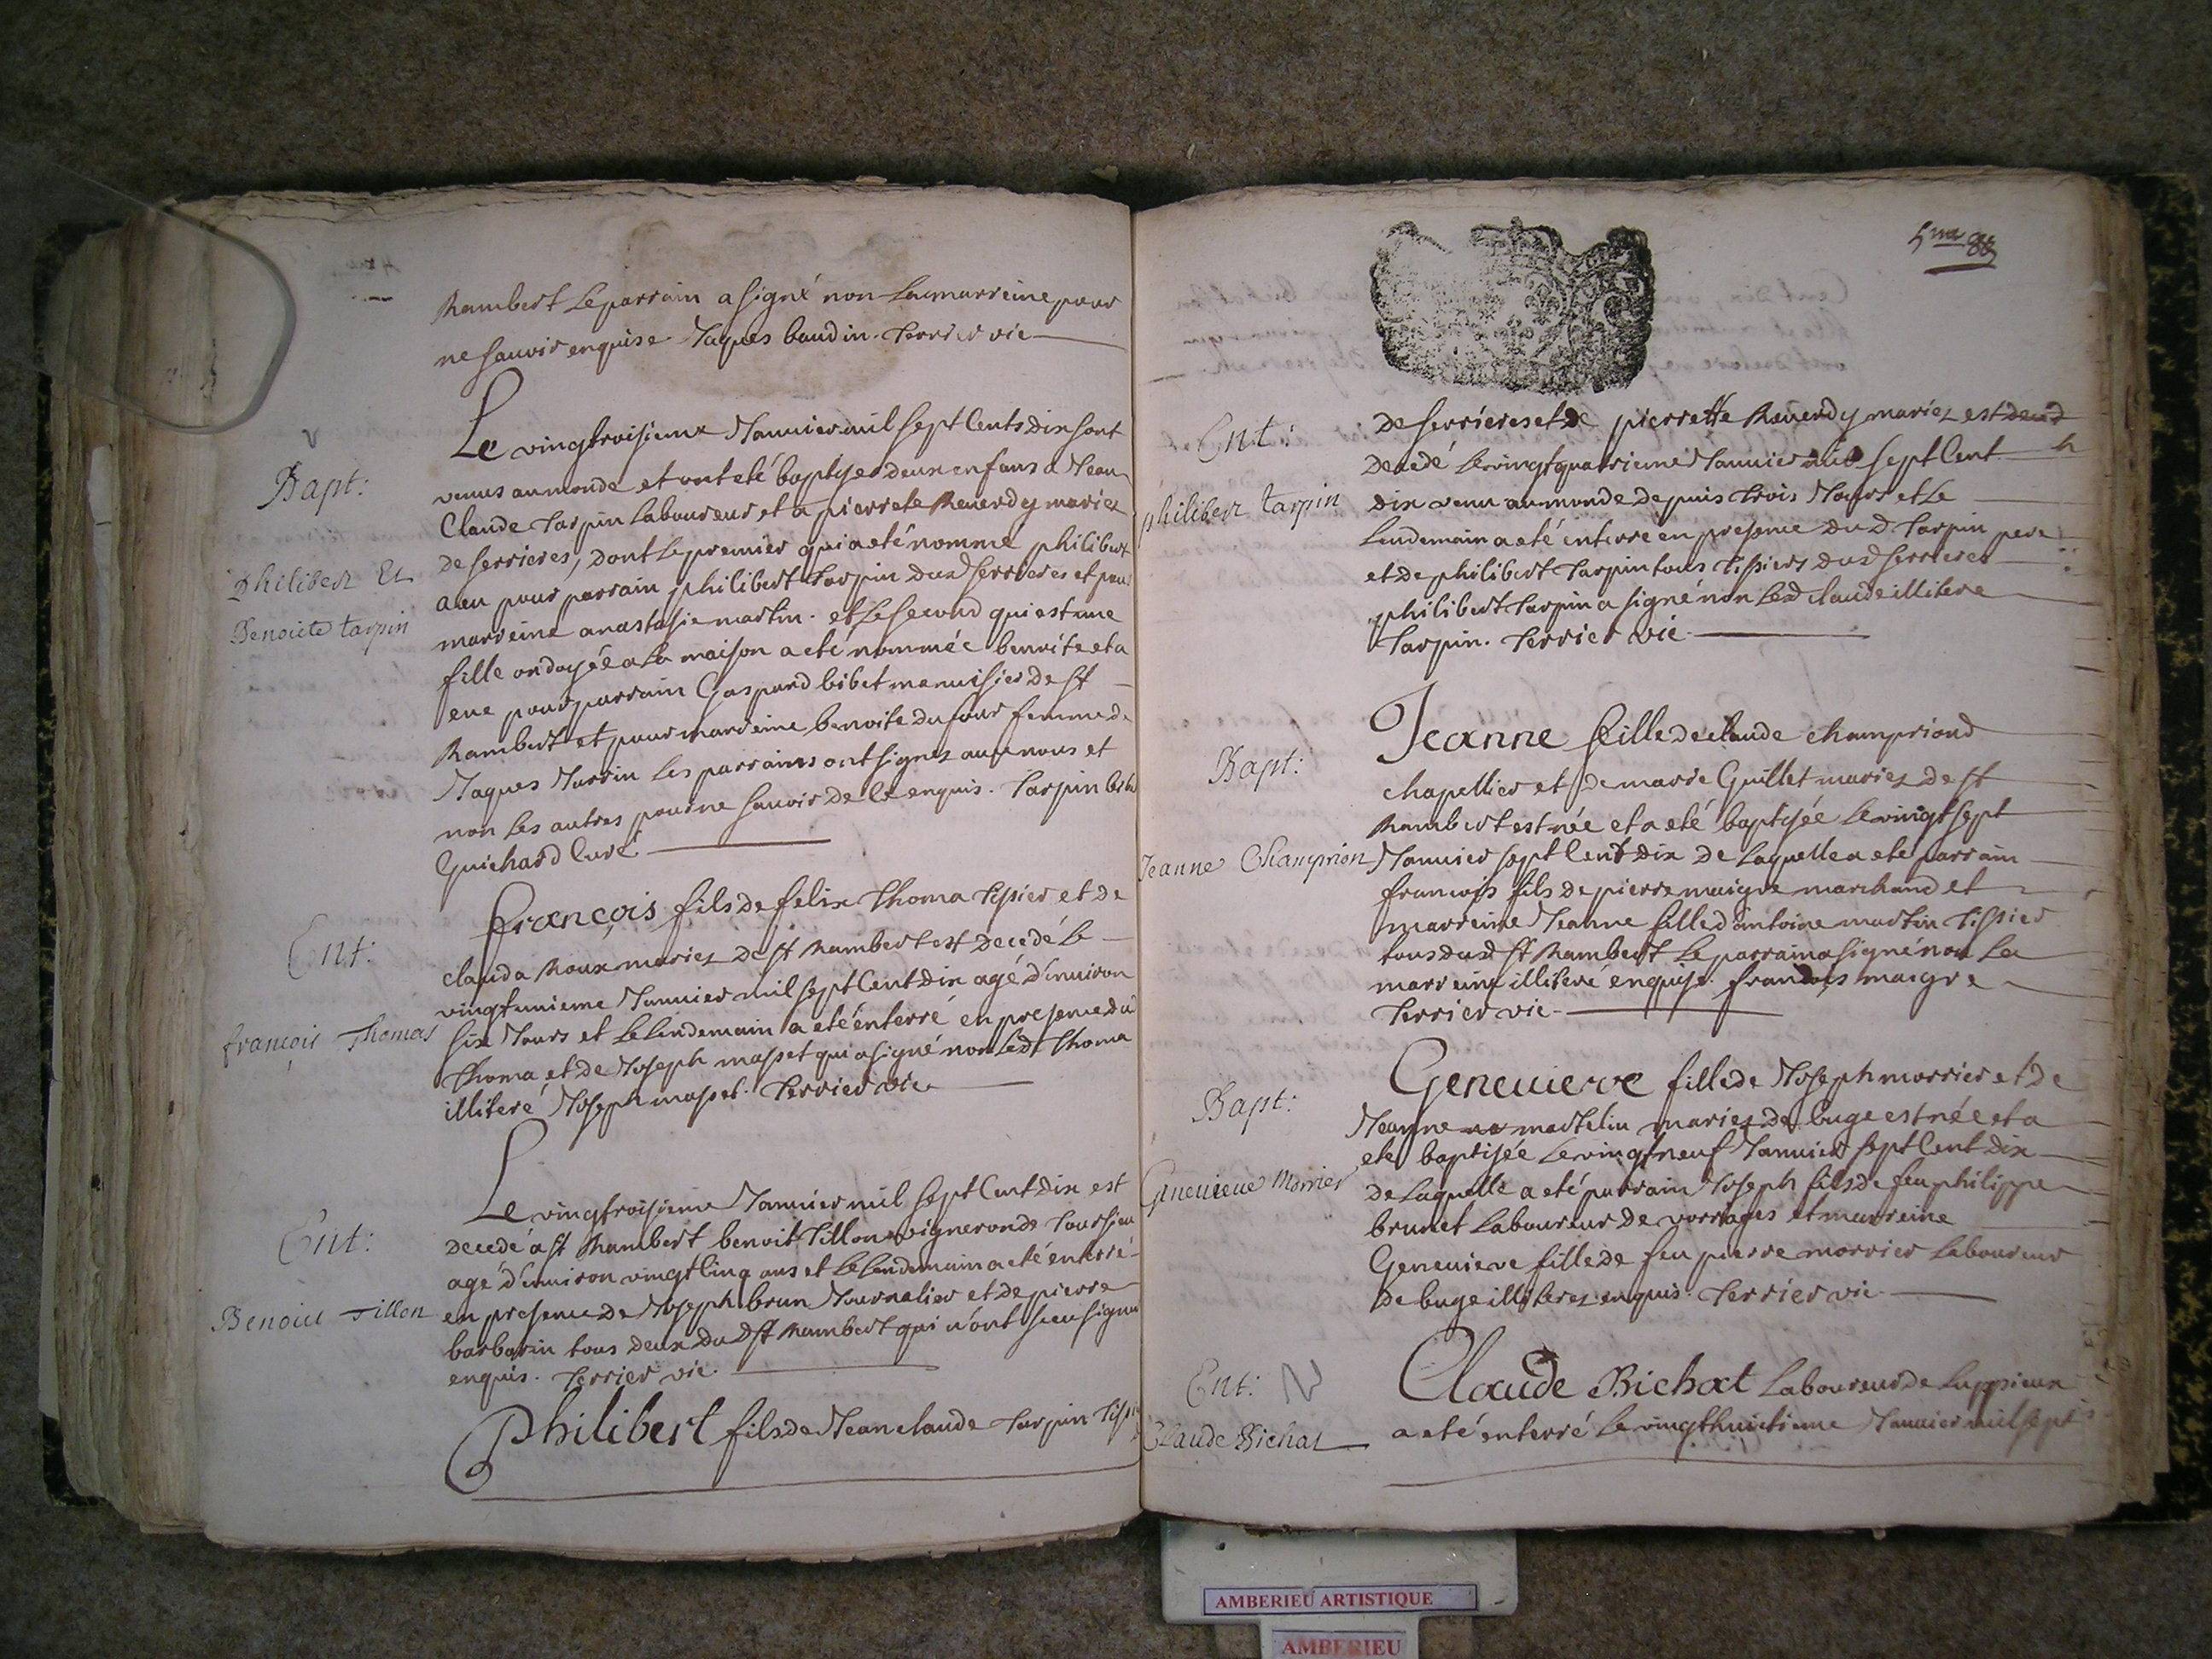 Rambert le parrain a signé non la marreine pour
ne sauoir enquise Jaques baudin. Terrier vic
Bapt:
philibert Et
Benoicte tarpin
Le vingtroisieme Januier mil sept Cents dix sont
venus au monde et ont eté baptises deux enfans a Jean
Claude tarpin laboureur et a pierrete Reuerdy mariez
de serrieres, dont le premier qui a eté nomme philibert
a eu pour parrain philibert tarpin dud serrieres et pour
marreine anastasie martin. et le second qui est une
fille ondoyée a la maison a eté nommée benoite et a
eue pour parrain Gaspard bibet menuisier de st
Rambert et pour marreine benoite dufour femme de
Jaques Jarrin les parrains ont signez auec nous et
non les autres pour ne sauoir de ce enquis. tarpin
Guichard Curé
Ent:
françois Thomas
François fils de felix Thoma tissier et de
clauda Roux mariez de st Rambert est decedé le
vingtunieme Januier mil sept Cent dix agé d'enuiron
six Jours et le lendemain a eté enterré en presence dud
Thoma et de Joseph masset qui a signé non led Thoma
illiteré Joseph masset. Terrier vic
Ent:
Benoict Tillon
Le vingtroisieme Januier mil sept Cent dix est
decedé a st Rambert benoit Tillon vigneron de
agé d'enuiron vingt Cinq ans et le lendemain a eté enterré
en presence de Joseph brun Journalier et de pierre
barbarin tous deux dud st Rambert qui n'ont sceu signer
enquis. Terrier vic
Philibert fils de Jean claude tarpin
5me
Ent:
philibert tarpin
de serrieres et de pierrette Reuerdy mariez est
decedé le vingtquatrieme Januier mil sept Cent
dix venu au monde depuis trois Jours et le
lendemain a eté enterré en presence dud tarpin pere
et de philibert tarpin tous tissiers dud serrieres
philibert tarpin a signé non led claude illitere
tarpin. Terrier vic
Bapt:
Jeanne Champrion
Jeanne fille de claude champriond
chapellier et de marie Guillet mariez de st
Rambert est née et a eté baptisée le vingt sept
Januier sept Cent dix de laquelle a eté parrain
francois fils de pierre maigre marchand et
marreine Jeanne fille d'antoine martin tissier
tous dud st Rambert le parrain a signé non la
marreine illiteré enquise. francois maigre
Terrier vic
Bapt:
Geneuieue Morrier
Geneuieve fille de Joseph morrier et de
Jeanne martelin mariez de buge est née et a
eté baptisée le vingtneuf Januier sept Cent dix
de laquelle a eté parrain Joseph fils de feu philippe
brunet laboureur de vorrages et marreine
Geneuieve fille de feu pierre morrier laboureur
de buge illiterez enquis. Terrier vic
Ent:
Claude Bichat
Claude Bichat laboureur de luppieux
a eté enterré le vingthuictieme Januier mil sept
AMBERIEU ARTISTIQUE
AMBERIEU